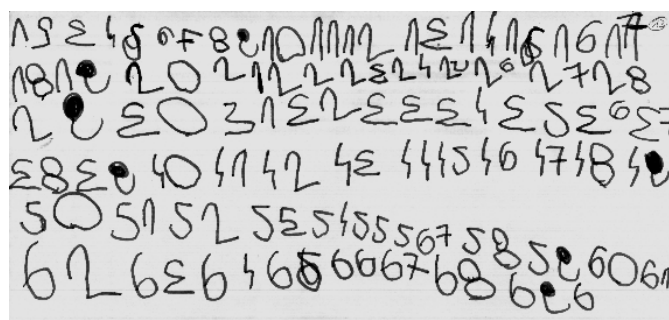 1 2 3 4 5 6 7 8 9 10 11 12 13 14 15 16 17
18 19 20 21 22 23 24 25 26 27 28
29 30 31 32 33 34 35 36 37
38 39 40 41 42 43 44 45 46 47 48 49
50 51 52 53 54 55 56 57 58 59 60 61
62 63 64 65 66 67 68 69 6